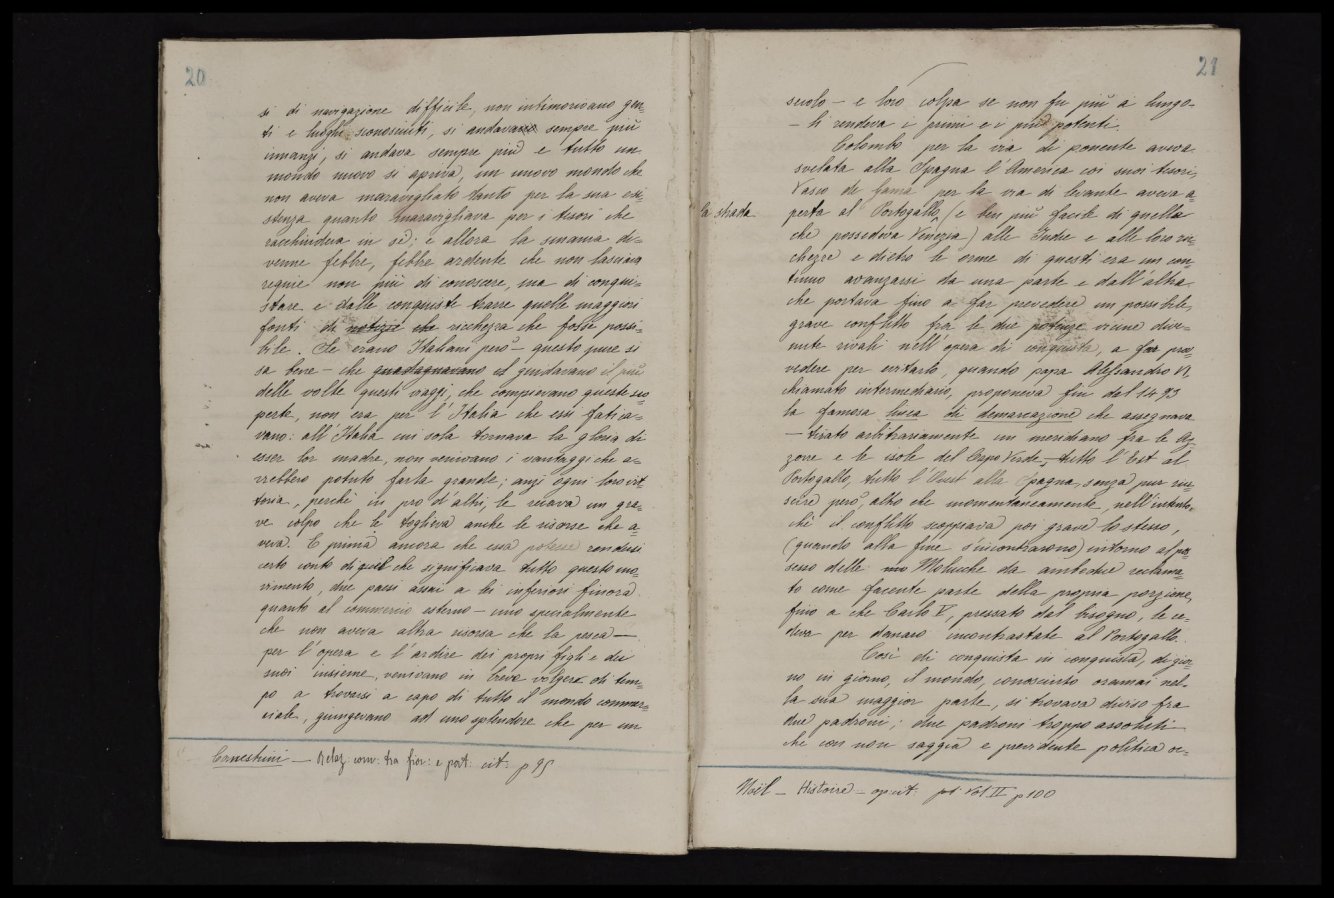 20
si di navigazione difficile, non intimorivano gen=
ti e luoghi sconosciuti, si andava sempre più
innanzi, si andava sempre più e tutto un
mondo nuovo si apriva, un nuovo mondo che
non aveva maravigliato tanto per la sua esi=
stenza quanto maravigliava per i tesori che
racchiudeva in sè; e allora la smania di=
venne febbre, febbre ardente che non lasciava
requie non più di conoscere, ma di conqui=
stare e dalle conquiste trarre quelle maggiori
fonti di notizie che ricchezza che fosse possi=
bile. Se erano Italiani però - questo pure si
sa bene - che guadagnavano ed guidavano il più
delle volte questi viaggi, che compievano queste sco=
perte, non era per l'Italia che essi fatica=
vano: all'Italia cui sola tornava la gloria di
esser lor madre, non venivano i vantaggi che a=
vrebbero potuto farla grande; anzi ogni loro vit=
toria, perchè in pro d'altri, le recava un gra=
ve colpo che le toglieva anche le risorse che a=
veva. E prima ancora che essa potesse rendersi
certo conto di quel che significava tutto questo mo=
vimento, due paesi assai a lei inferiori finora
quanto al commercio esterno - uno specialmente
che non aveva altra risorsa che la pesca -
per l'opera e l'ardire dei propri figli e dei
suoi insieme, venivano in breve volgere di tem=
po a trovarsi a capo di tutto il mondo commer=
ciale, giungevano ad uno splendore che per un
Canestrini - Relaz. com: tra fior: e port: cit: p 95
21
secolo - e loro colpa se non fu più a lungo -
- li rendeva i primi e i più potenti.
Colombo per la via di ponente aveva
svelata alla Spagna l'America coi suoi tesori,
Vasco de Gama per la via di levante aveva a=
perta al Portogallo (e ben più facile di quella
la strada
che possedeva Venezia) alle Indie e alle loro ric=
chezze e dietro le orme di questi era un con=
tinuo avanzarsi da una parte e dall'altra
che portava fino a far prevedere un possibile,
grave conflitto fra le due potenze vicine dive=
nute rivali nell'opera di conquista, a far prov=
vedere per evitarlo, quando papa Alessandro VI,
chiamato intermediario, proponeva fin dal 1493
la famosa linea di demarcazione che assegnava
- tirato arbitrariamente un meridiano fra le Az=
zorre e le isole del Capo Verde -, tutto l'Est al
Portogallo, tutto l'Ovest alla Spagna, senza pur riu=
scire però, altro che momentaneamente, nell'intento,
chè il conflitto scoppiava poi grave lo stesso,
(quando alla fine s'incontrarono) intorno al pos=
sesso delle Molucche da ambedue reclama=
te come facente parte della propria porzione,
fino a che Carlo V, pressato dal bisogno, le ce=
deva per danaro incontrastate al Portogallo.
Così di conquista in conquista, di gior=
no in giorno, il mondo, conosciuto oramai nel=
la sua maggior parte, si trovava diviso fra
due padroni; due padroni troppo assoluti
che con non saggia e previdente politica oc=
Noël - Histoire - op cit: Vol II p 100